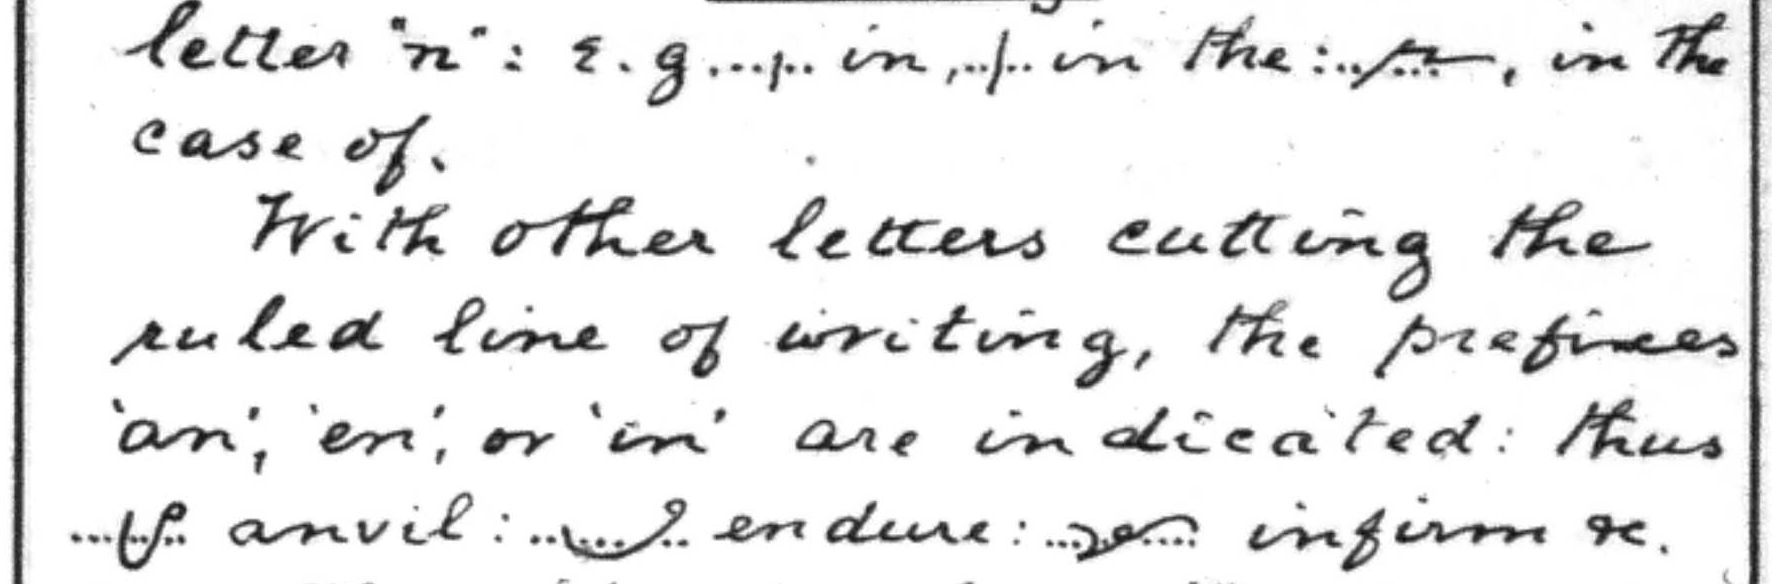 letter "n": e.g. in, in the: , in the
case of.
With other letters cutting the
ruled line of writing, the prefixes
'an', 'en', or 'in' are indicated: thus
anvil: endure: infirm &c.